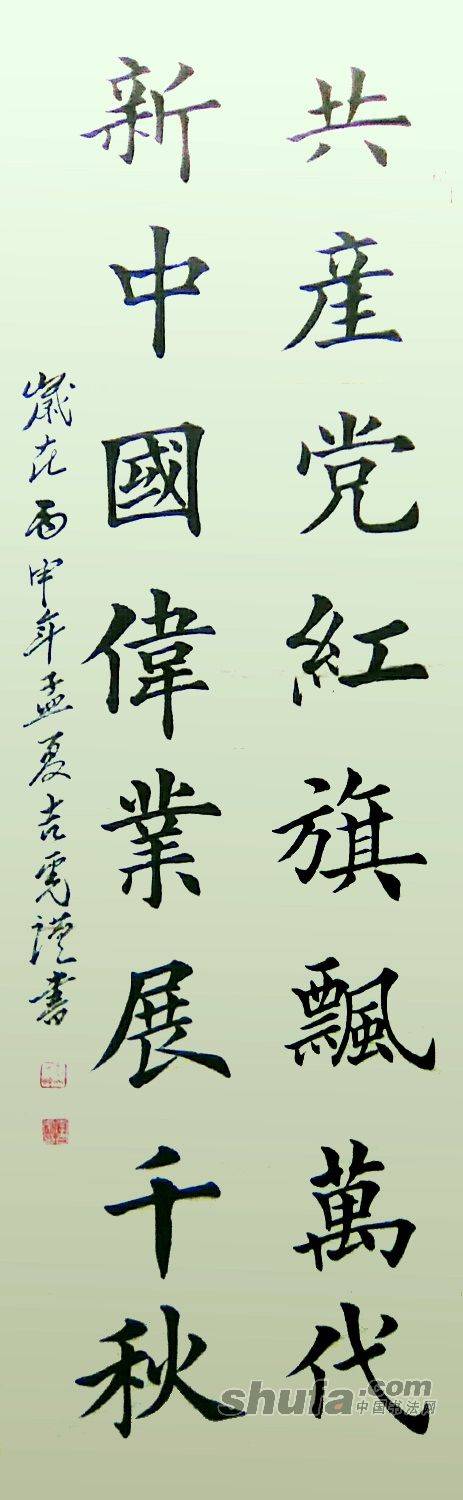 共産党紅旗飄萬代
新中國偉業展千秋
歲在丙申年孟夏吉虎謹書
shufa.com
中国书法网